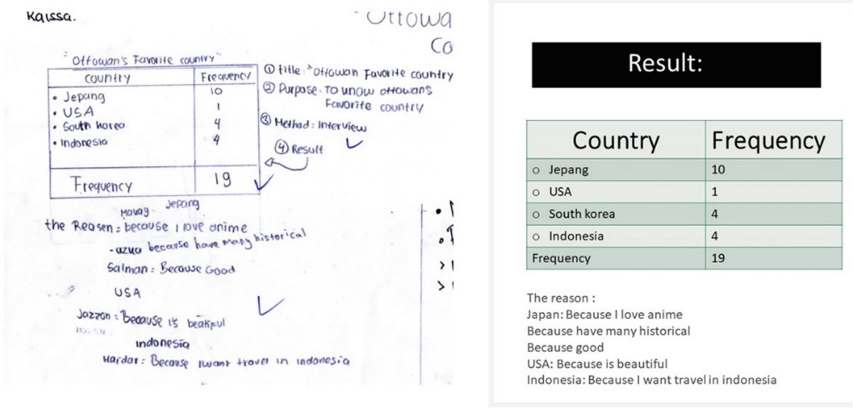 Kaissa.
Ottowa
Co
"Ottowan's Favorite country"
country Frequency
• Jepang 10
• USA 1
• South korea 4
• Indonesia 4
Frequency 19
① title: "Ottowan Favorite country
② Purpose: To unow ottowan's
Favorite country
③ Method: Interview
④ Result
Jepang
the Reasen: because I love anime
- azka because have many historical
Salman: Because Good
USA
Jazzan: Because is beatiful
indonesia
Haidar: Because I want travel in indonesia
Result:
Country Frequency
○ Jepang 10
○ USA 1
○ South korea 4
○ Indonesia 4
Frequency 19
The reason :
Japan: Because I love anime
Because have many historical
Because good
USA: Because is beautiful
Indonesia: Because I want travel in indonesia